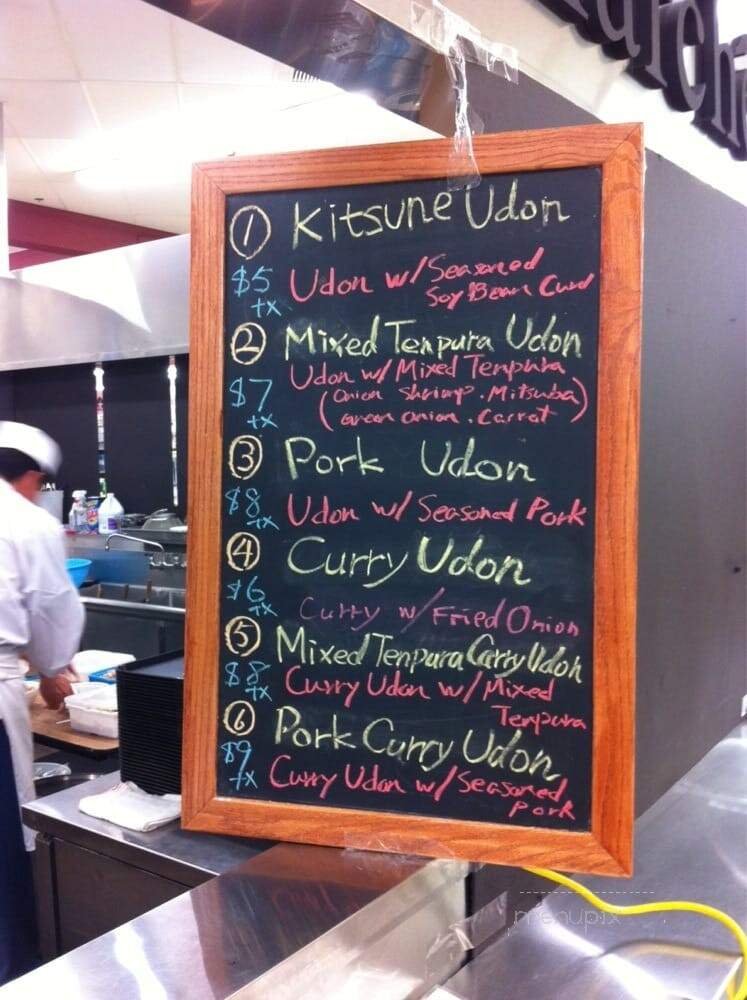 ① Kitsune Udon
$5 +x Udon w/ Seasoned
Soy Bean Curd
② Mixed Tenpura Udon
$7 +x Udon w/ Mixed Tenpura
(Onion Shrimp. Mitsuba)
(Green onion. Carrot)
③ Pork Udon
$8 +x Udon w/ Seasoned Pork
④ Curry Udon
$6 +x Curry w/ Fried Onion
⑤ Mixed Tenpura Curry Udon
$8 +x Curry Udon w/ Mixed
Tenpura
⑥ Pork Curry Udon
$9 +x Curry Udon w/ Seasoned
Pork
menupix